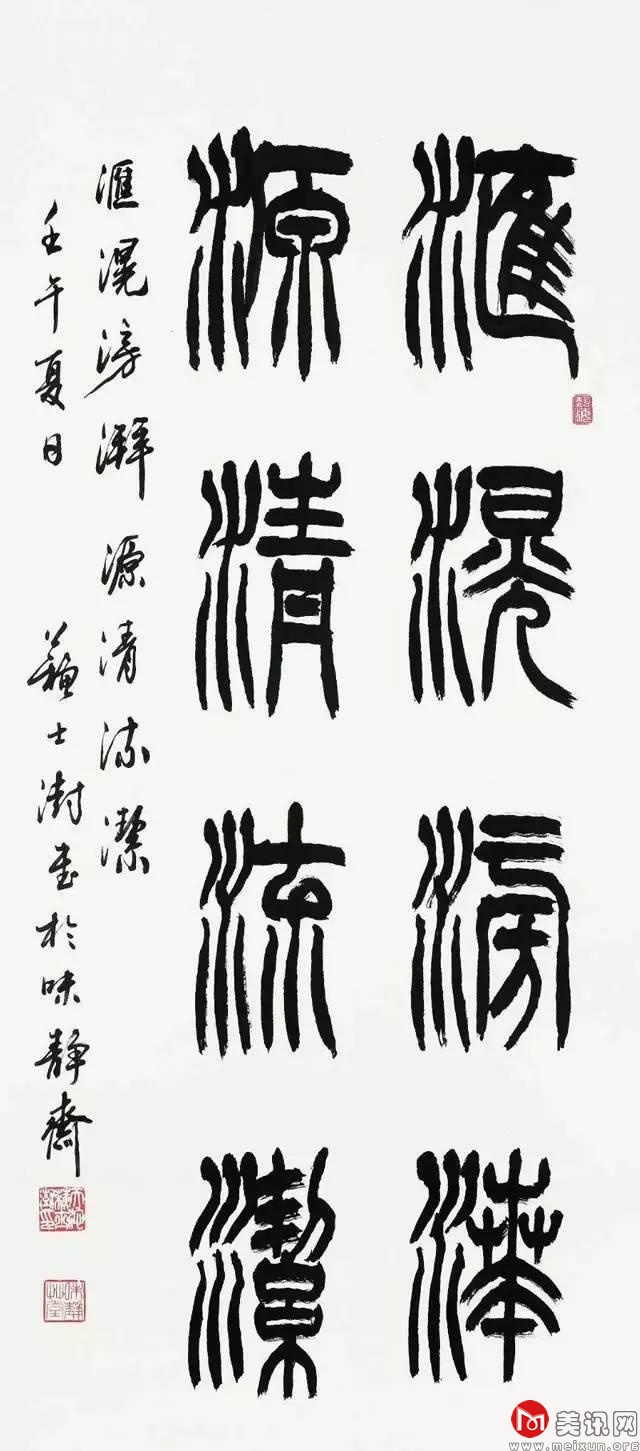 滙滉滂湃
源清流潔
滙滉滂湃源清流潔
壬午夏日 蘇士澍書於味静齋
美讯网
www.meixun.org